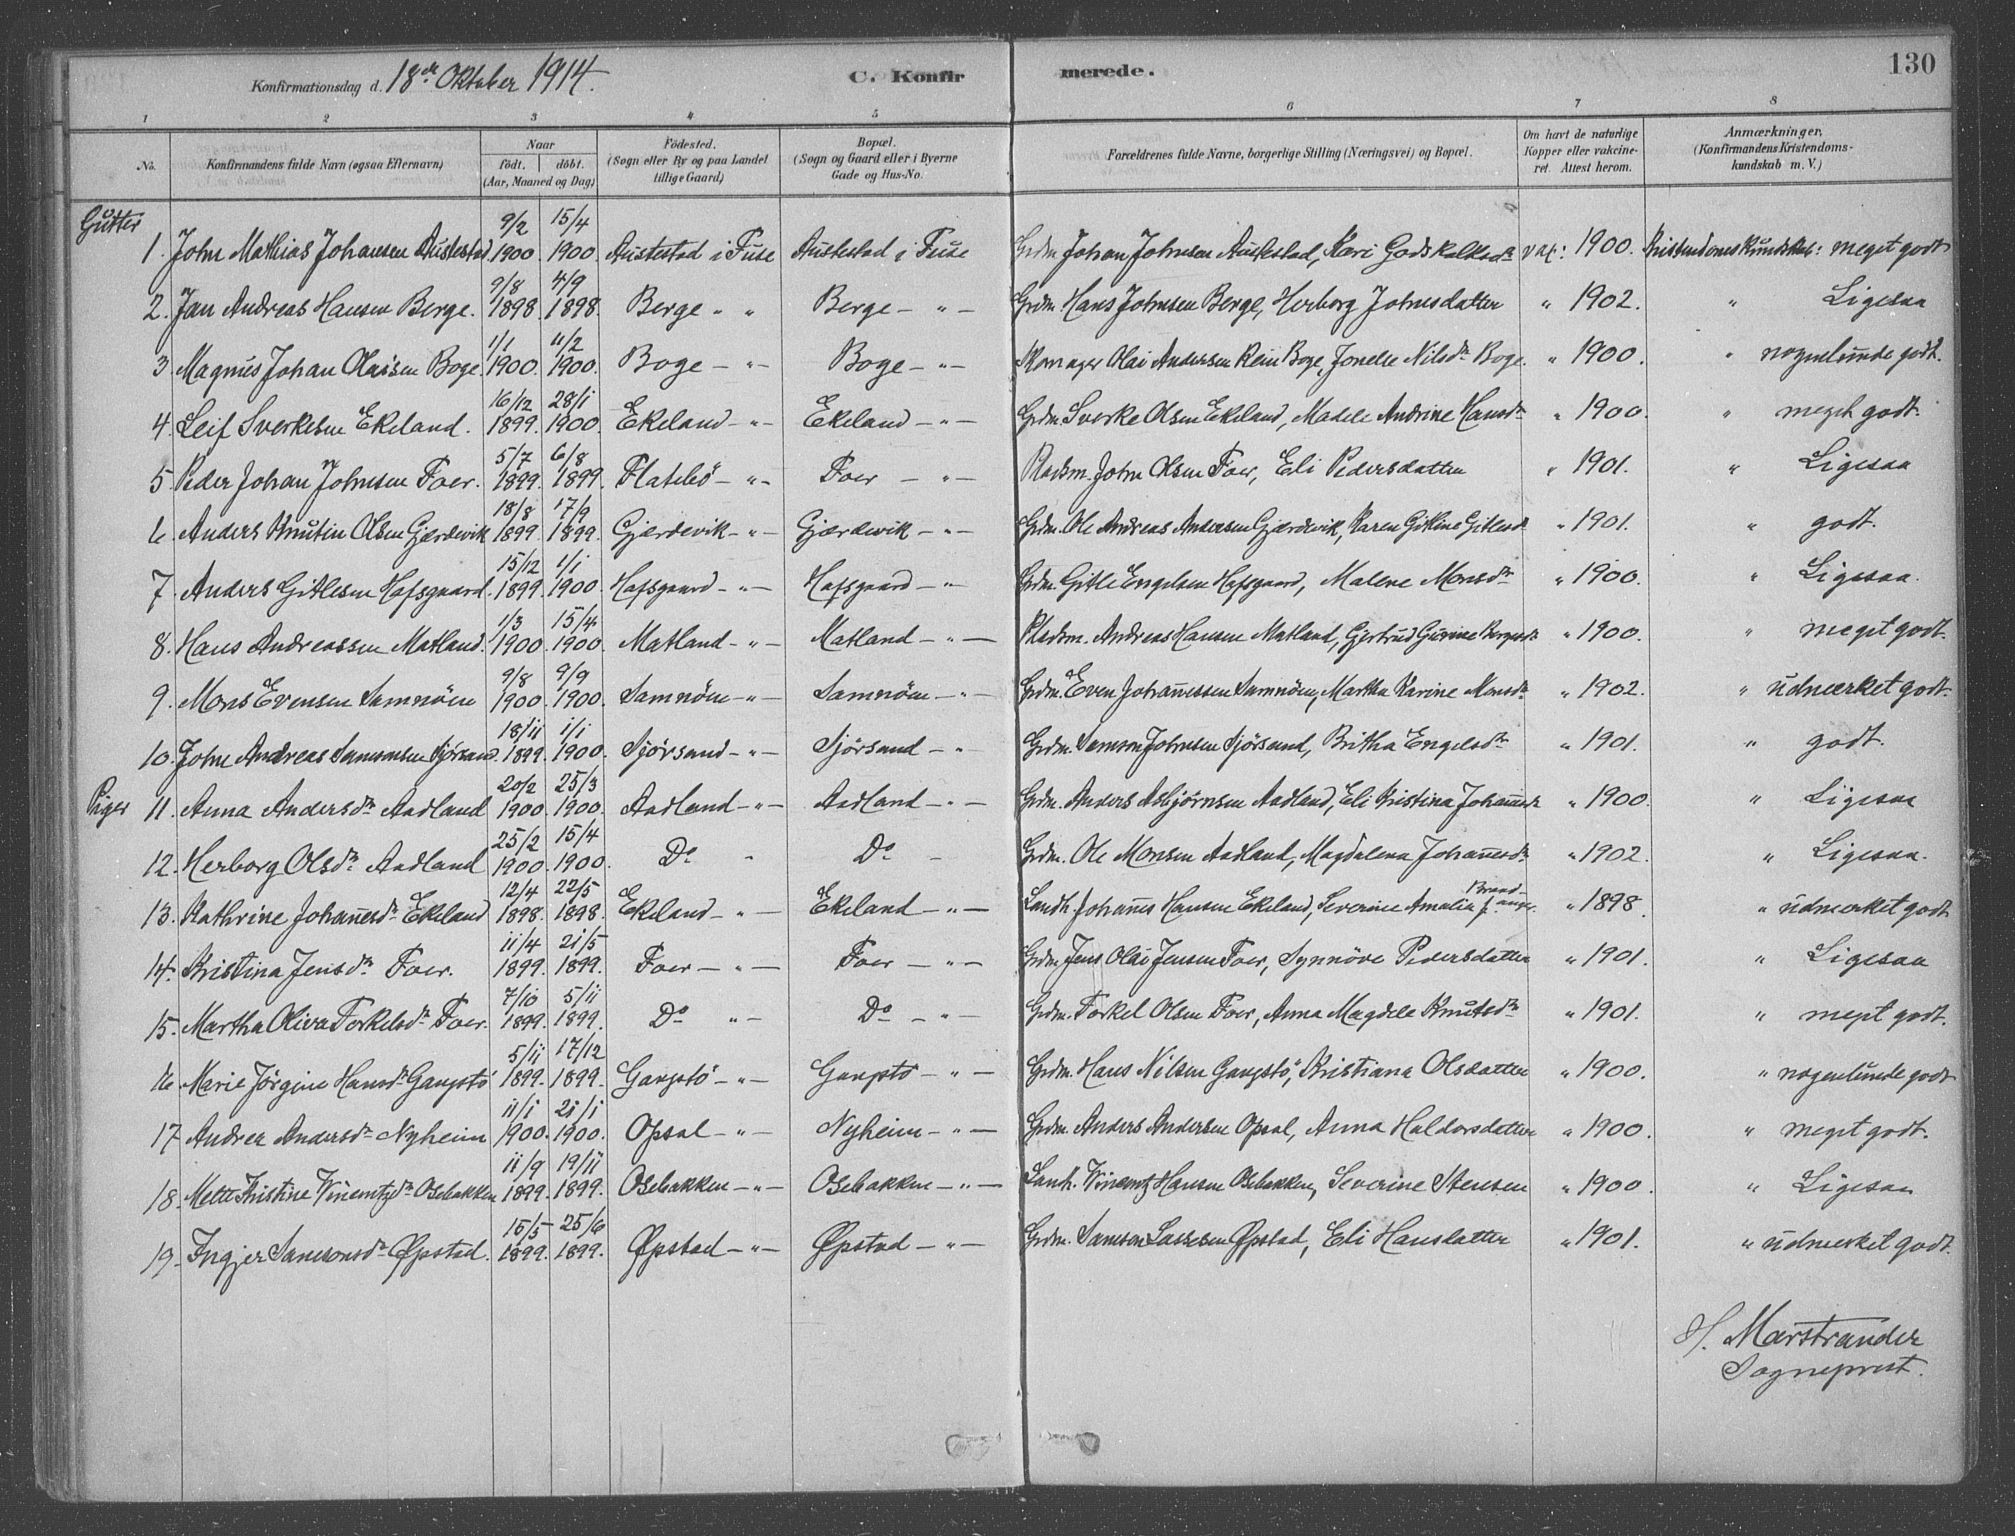 Konfirmationsdag d. 18de Oktober 1914. C. Konfirmerede. 130
1 2 3 4 5 6 7 8
No. Konfirmandens fulde Navn (ogsaa Efternavn) Naar født. døbt. (Aar, Maaned og Dag) Fødested. (Sogn eller By og paa Landet tillige Gaard) Bopæl. (Sogn og Gaard eller i Byerne Gade og Hus-No. Forældrenes fulde Navne, borgerlige Stilling (Næringsvei) og Bopæl. Om havt de naturlige Kopper eller vakcineret. Attest herom. Anmærkninger. (Konfirmandens Kristendomskundskab m. V.)
Gutter
1. John Mathias Johansen Austestad 9/2 1900. 15/4 1900 Austestad i Fuse Austestad i Fuse Grdm. Johan Johnsen Austestad, Kari Godskalksdr vac: 1900. Kristendomskundskab: meget godt
2. Jan Andreas Hansen Berge. 9/8 1898. 4/9 1898. Berge " " Berge – " – Grdm. Hans Johnsen Berge, Herborg Johnsdatter " 1902. " Ligesaa
3. Magnus Johan Olaisen Boge. 1/1 1900. 11/2 1900. Boge – " – Boge – " – Skomager Olai Andersen Rein Boge, Nilsdr Boge. " 1900. " nogenlunde godt.
4. Leif Sverkesen Ekeland. 16/12 1899. 28/1 1900. Ekeland – " – Ekeland – " – Grdm. Sverke Olsen Ekeland, Madele Andrine Hansdr " 1900. " meget godt.
5. Peder Johan Johnsen Foer. 5/7 1899. 6/8 1899. Flatebö – " – Foer – " – Pladsm. John Olsen Foer, Eli Pedersdatter " 1901. " Ligesaa
6. Anders Knutin Olsen Gjærdevik 18/8 1899. 17/9 1899. Gjærdevik – " – Gjærdevik – " – Grdm. Ole Andreas Andersen Gjærdevik, Karen Gitline Gitlesdr " 1901. " godt.
7. Anders Gitlesen Hafsgaard. 15/12 1899. 1/1 1900. Hafsgaard – " – Hafsgaard – " – Grdm. Gitle Engelsen Hafsgaard, Malene Monsdr " 1900. " Ligesaa.
8. Hans Andreassen Matland. 1/3 1900. 15/4 1900. Matland – " – Matland – " – Pladsm. Andreas Hansen Matland, Gjertrud Gurine " 1900. " meget godt.
9. Mons Evensen Samnöen 9/8 1900. 9/9 1900. Samnöen – " – Samnöen – " – Grdm. Even Johannessen Samnöen, Martha Karine Monsdr " 1902. " udmerket godt.
10. John Andreas Samsonsen Sjørsand. 18/11 1899. 1/1 1900. Sjørsand – " – Sjørsand – " Grdm. Samson Johnsen Sjørsand, Britha Engelsdr " 1901. " godt.
Piger
11. Anna Andersdr Aadland 20/2 1900. 25/3 1900. Aadland – " – Aadland – " – Grdm. Anders Asbjørnsen Aadland, Eli Kristina Johannesdr " 1900. " Ligesaa
12. Herborg Olsdr Aadland 25/2 1900. 15/4 1900. Do " Do – Grdm. Ole Monsen Aadland, Magdalena Johannesdr " 1902. " Ligesaa.
13. Kathrine Johannesdr Ekeland 12/4 1898. 22/5 1898. Ekeland – " – Ekeland – " – Landh. Johannes Hansen Ekeland, Severine Amalia f. Brandanger. " 1898. " udmerket godt
14. Kristina Jensdr Foer. 11/4 1899. 21/5 1899. Foer – " – Foer – " – Grdm. Jens Olai Jensen Foer, Synnöve Pedersdatter " 1901. " Ligesaa
15. Martha Oliva Torkelsdr Foer. 7/10 1899. 5/11 1899. Do " – Do – " – Grdm. Torkel Olsen Foer, Anna Magdele Knutsdr " 1901. " meget godt.
16 Marie Jörgine Hansdr Gangstö 5/11 1899. 17/12 1899. Gangstö – " – Gangstö – " – Grdm. Hans Nilsen Gangstö, Kristiana Olsdatter " 1900. " nogenlunde godt
17 Andrea Andersdr Nyheim 11/1 1900. 21/1 1900. Opsal – " – Nyheim – " – Grdm. Anders Andersen Opsal, Anna Haldorsdatter " 1900. " meget godt.
18. Mette Kristine Vincentzdr Osebakken 11/9 1899. 19/11 1899. Osebakken – " – Osebakken – " – Landh. Vincentz Hansen Osebakken, Severine Stensen " 1900. " Ligesaa
19. Ingjer Samsonsdr Øpstad. 15/5 1899. 25/6 1899. Øpstad – " – Øpstad – " – Grdm. Samson Lassesen Øpstad, Eli Hansdatter " 1901. " udmerket godt.
H. Marstrander
Sogneprest.